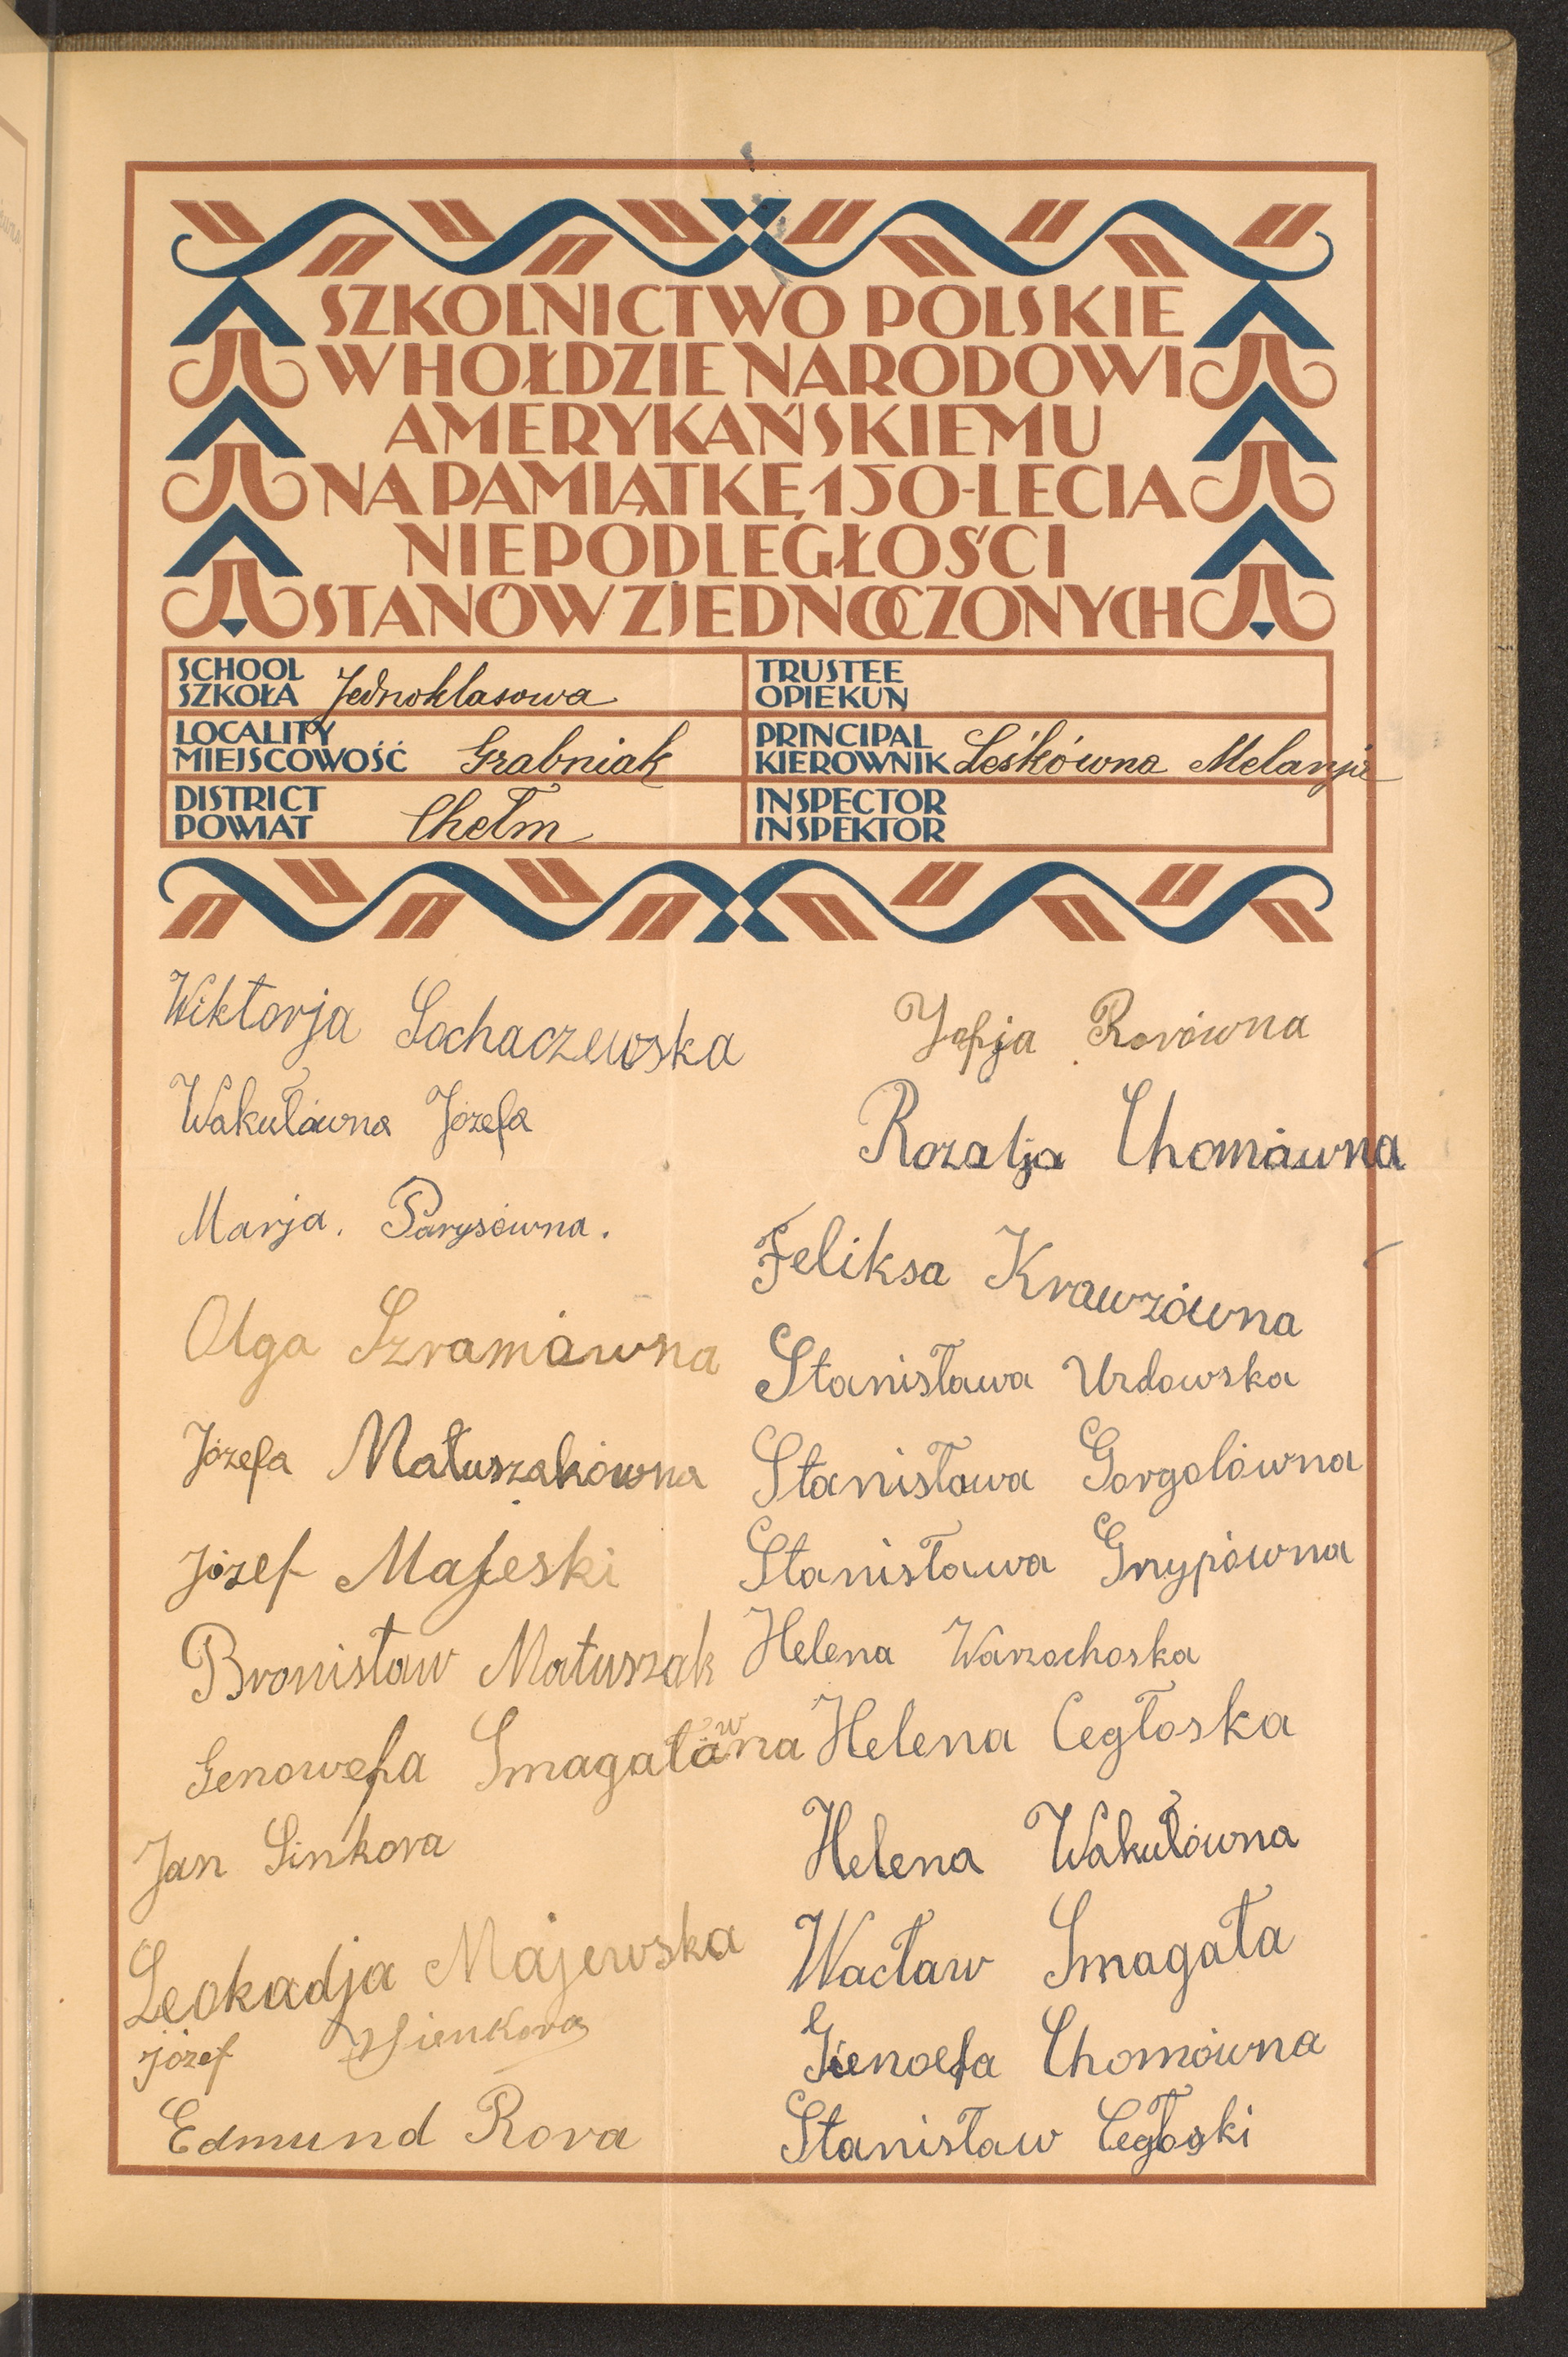 SZKOLNICTWO POLSKIE
W HOŁDZIE NARODOWI
AMERYKAŃSKIEMU
NA PAMIĄTKĘ 150-LECIA
NIEPODLEGŁOŚCI
STANÓW ZJEDNOCZONYCH
SCHOOL
SZKOŁA Jednoklasowa
TRUSTEE
OPIEKUN
LOCALITY
MIEJSCOWOŚĆ Grabniak
PRINCIPAL
KIEROWNIK Leśkówna Melanja
DISTRICT
POWIAT Chełm
INSPECTOR
INSPEKTOR
Wiktorja Sochaczewska
Wakułówna Józefa
Marja. Parysówna.
Olga Szramówna
Józefa Matuszakówna
Józef Majeski
Bronisław Matuszak
Genowefa Smagałówna
Jan Sinkora
Leokadja Majewska
Józef Sienkora
Edmund Rora
Zofja Rorówna
Rozalja Chomówna
Feliksa Krawzówna
Stanisława Urdowska
Stanisława Gorgolówna
Stanisława Gnypówna
Helena Warzochoska
Helena Cegłoska
Helena Wakułówna
Wacław Smagała
Gienoefa Chomówna
Stanisław Cegłoski